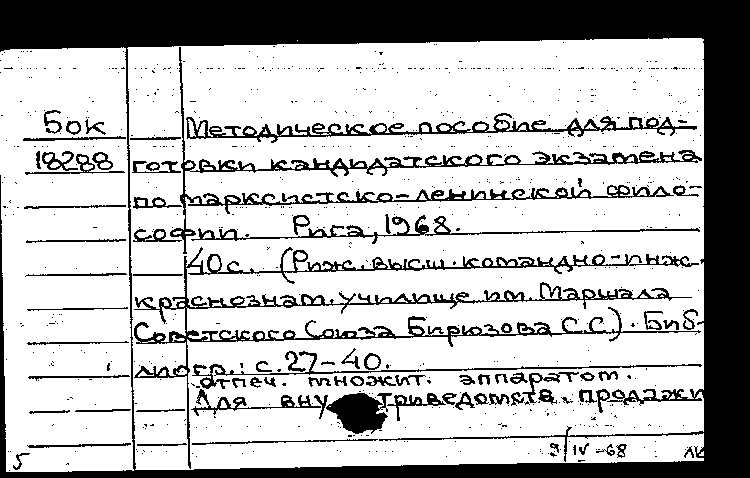 Бок Методическое пособие для под-
18288 готовки кандидатского экзамена
по марксистско-ленинской фило-
софии. Рига, 1968.
40с. (Риж. высш. командно-инж.
краснознам. училище им. Маршала
Советского Союза Бирюзова С.С.). Биб-
лиогр.: с.27-40.
отпеч. множит. аппаратом.
Для внутриведомств. продажи
9/IV-68
5